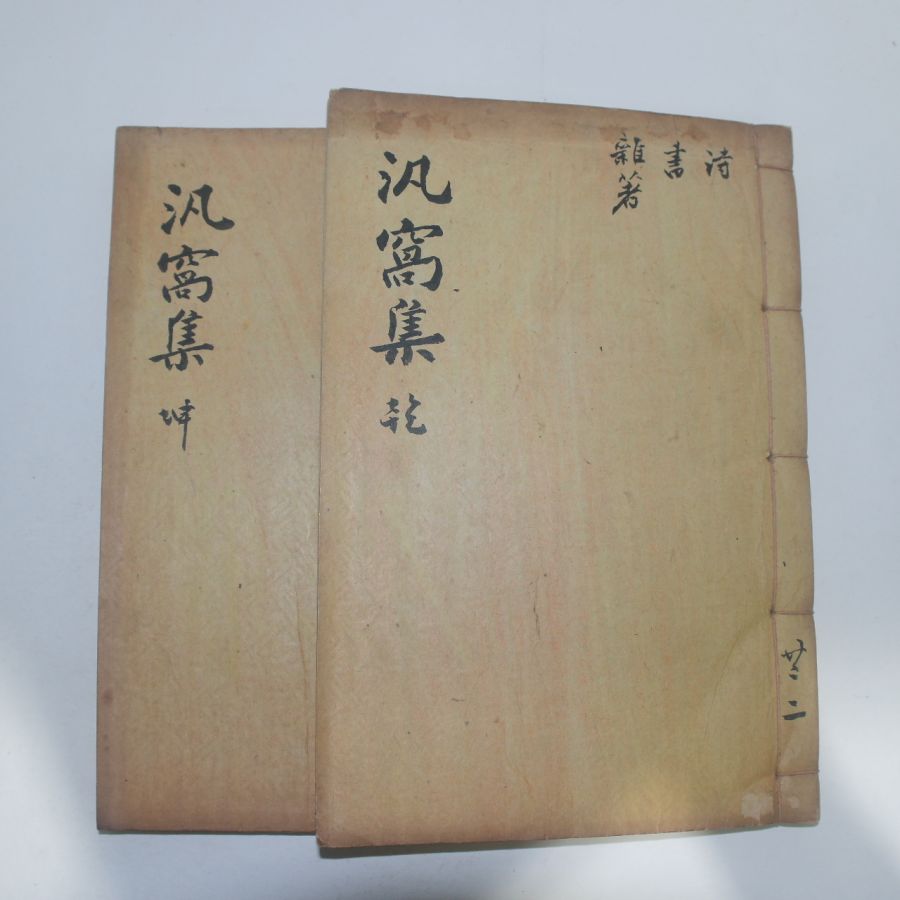 詩
書
雜著
汎窩集 乾
共二
汎窩集 坤